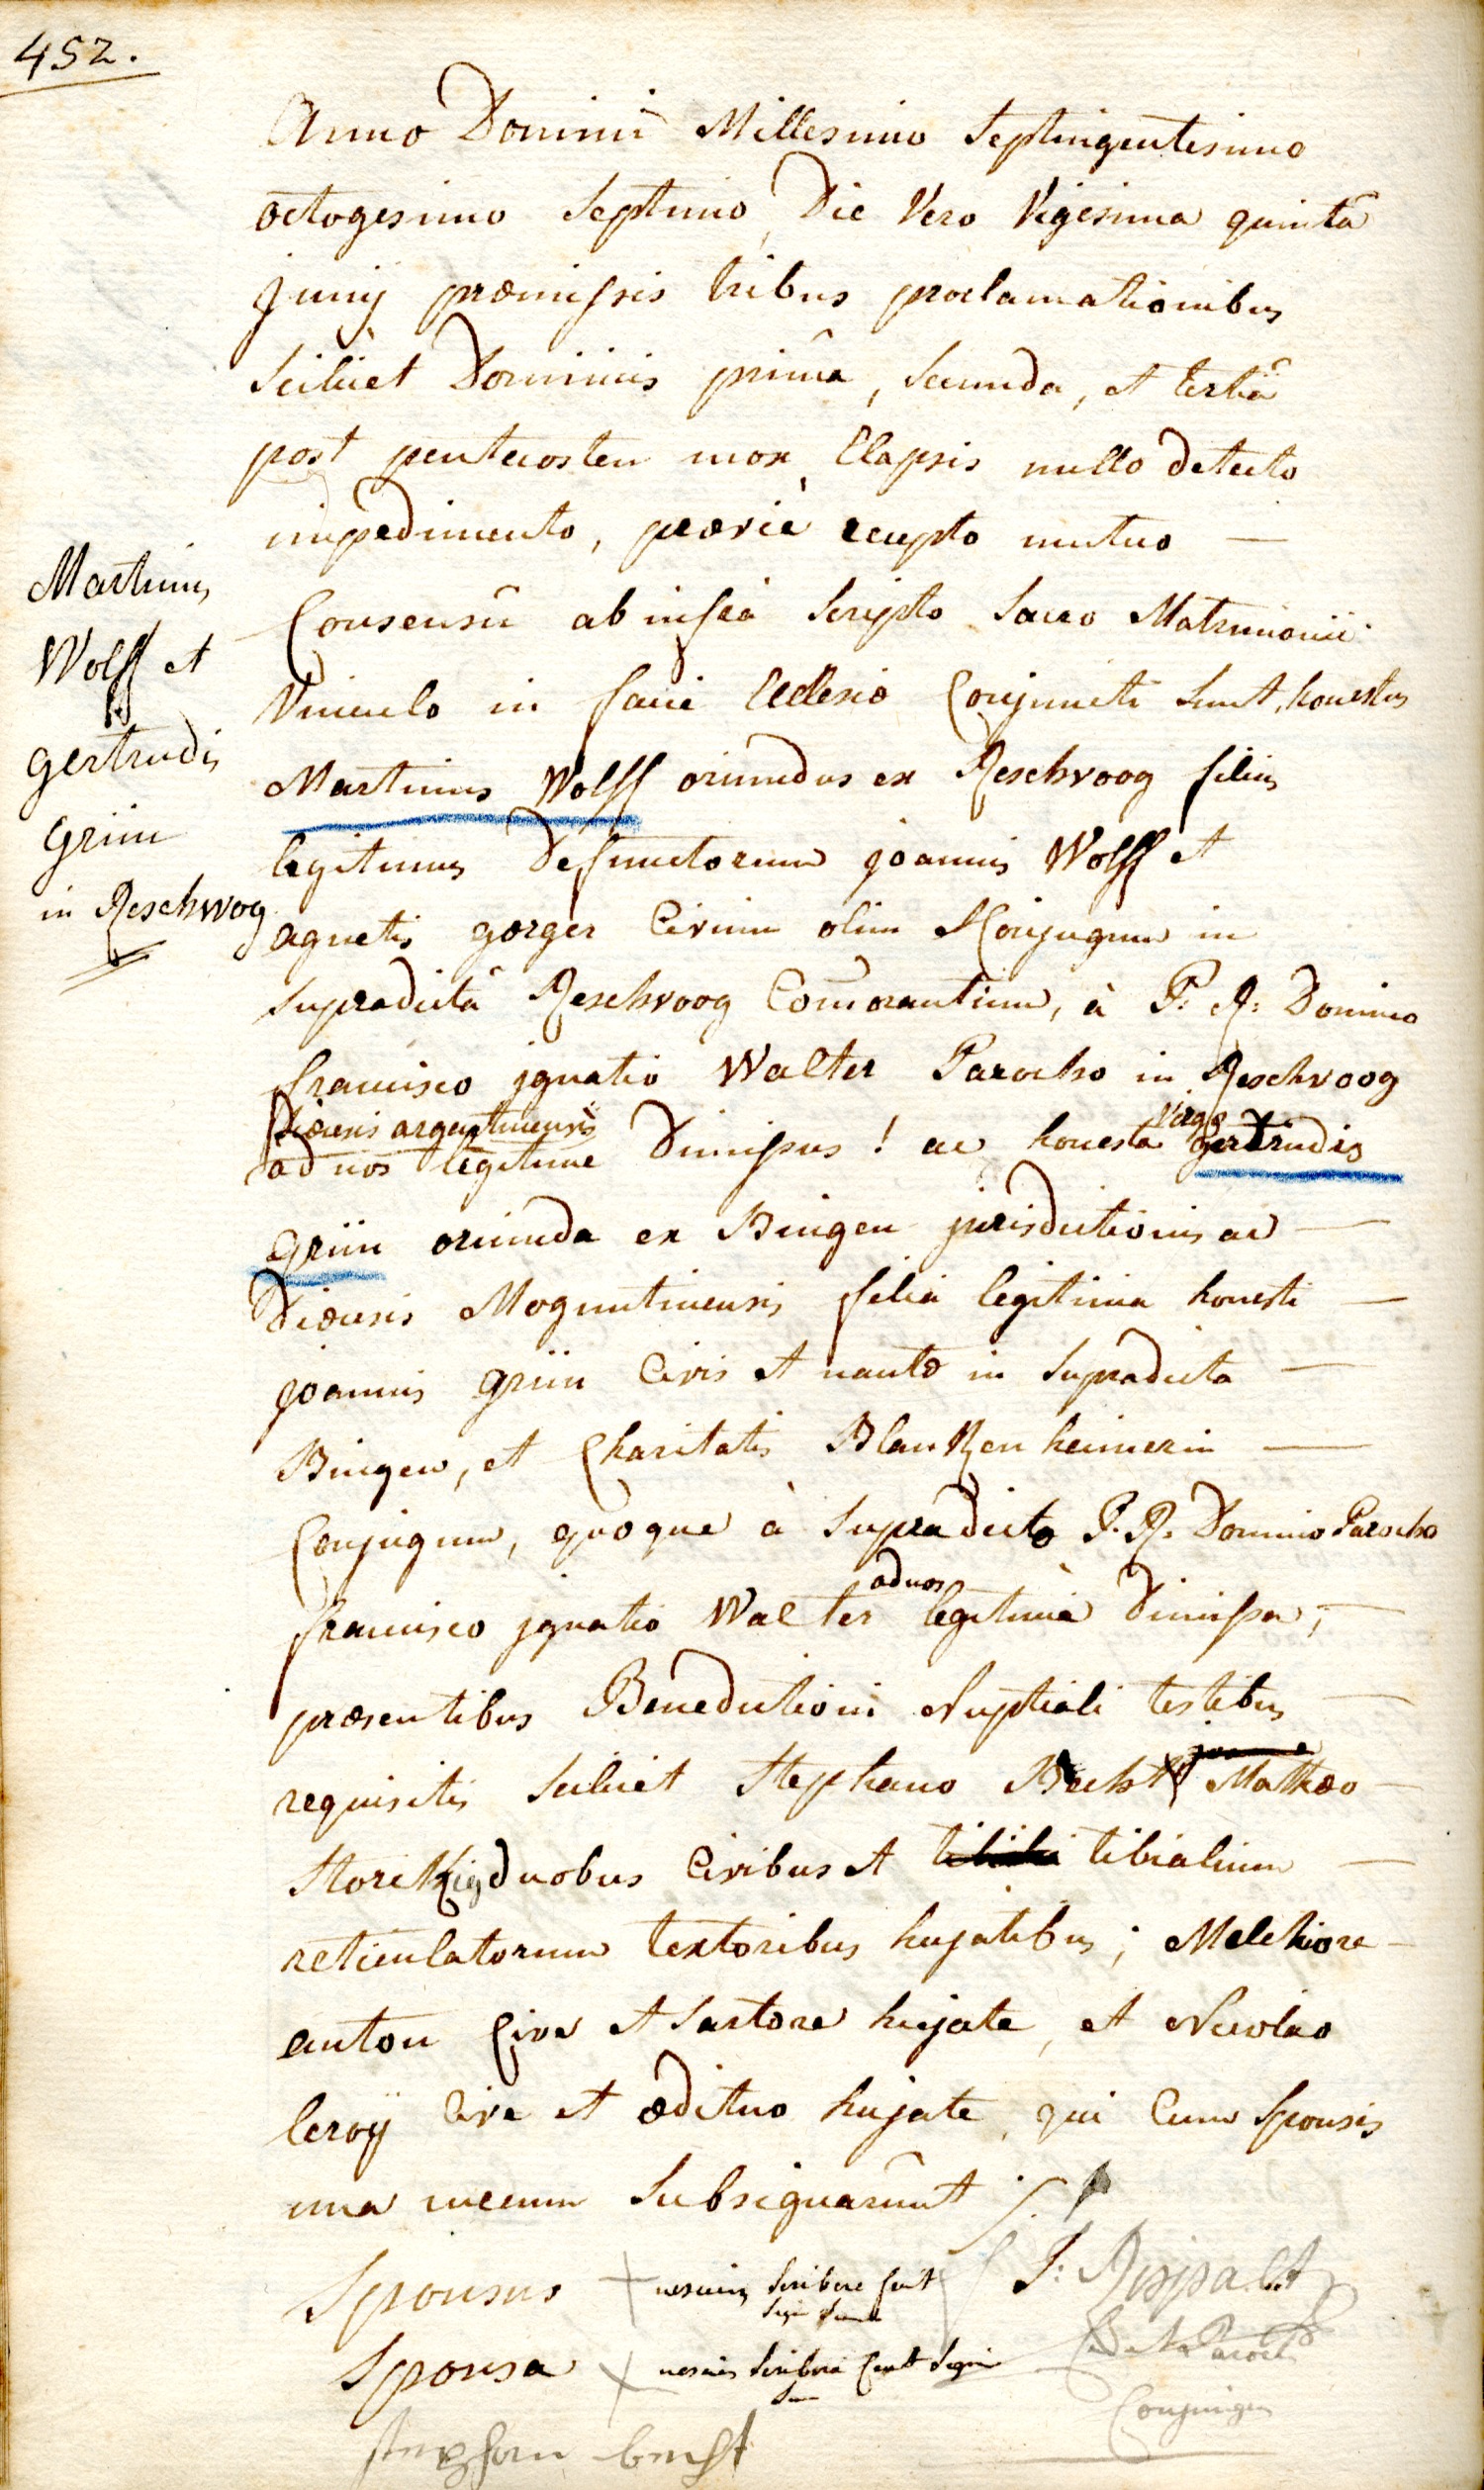 452.
Anno Domini Millesimo Septingentesimo
octogesimo Septimo, Die Vero Vigesima quintâ
Junij præmissis tribus proclamationibus
Scilicet Dominicis primâ, Secunda, et tertiâ
post pentecosten mox Elapsis nullo detecto
impedimento, prævie recepto mutuo —
Consensû ab infrà Scripto Sacro Matrimonii
Vinculo in facie Ecclesiæ Conjuncti Sunt, honestus
Martinus Wolff oriundus ex Reschvoog filius
legitimus defunctorum joannis Wolff et
agnetis gœrger Civium olim Conjugum in
Supradictâ Reschvoog Com̄orantium, à P: R: Domino
francisco jgnatio Walter Parocho in Reschvoog
Diœcesis argentinensis
ad nos legitime Dimissus! ac honesta Virgo gertrudis
Grün oriunda ex Bingen jurisdictionis ac —
Diœcesis Moguntinensis filia legitima honesti —
joannis Grün Civis et nautæ in Supradicta —
Bingen, et Charitatis Blankenheimerin —
Conjugum, quoque à Supradicto P. R. Domino Parocho
francisco jgnatio Walter ad nos legitimè Dimissa, —
præsentibus Benedictioni Nuptiali testibus —
requisitis Scilicet Stephano Becht Mathæo —
Storck duobus Civibus et tibialium —
reticulatorum textoribus hujatibus; Melchiore —
anton Cive et Sartore hujate, et Nicolao
leroÿ Cive et ædituo hujate, qui Cum Sponsis
una mecum Subsignarunt
Martinus
Wolff et
gertrudis
Grün
in Reschwog
Sponsus + nesciens Scribere fecit
Sponsa + nesciens Scribere fecit Signum
Stephan becht